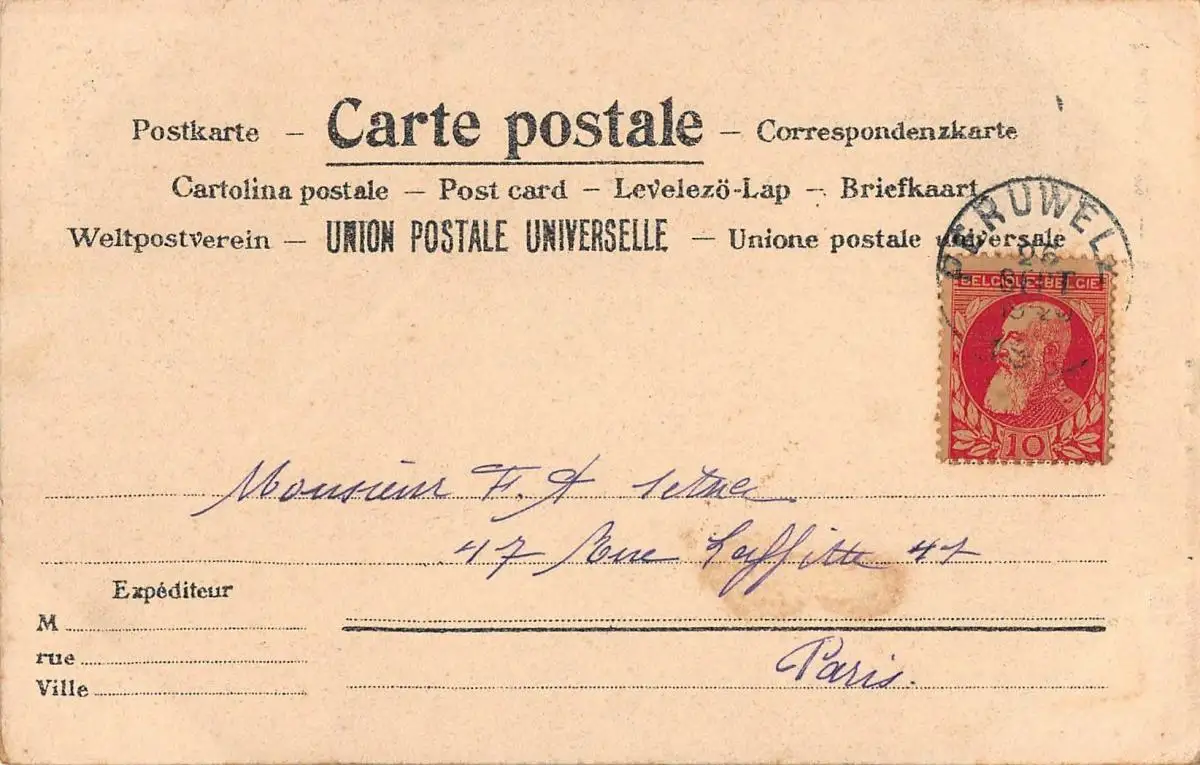 Postkarte – Carte postale – Correspondenzkarte
Cartolina postale – Post card – Levelező-Lap – Briefkaart
Weltpostverein – UNION POSTALE UNIVERSELLE – Unione postale universale
PERUWELZ
26
SEPT
BELGIQUE-BELGIE
10
Monsieur F. A
47 Rue Laffitte 47
Expéditeur
M
rue
Ville
Paris.